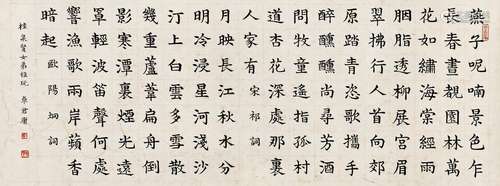 燕子呢喃景色乍
長春晝覩園林萬
花如繡海棠經雨
胭脂透柳展宮眉
翠拂行人首向郊
原踏青恣歌攜手
醉醺醺尚尋芳酒
問牧童遙指孤村
道杏花深處那裏
人家有 宋祁詞
月映長江秋水分
明冷浸星河淺沙
汀上白雲多雪散
幾叢蘆葦扁舟倒
影寒潭裏煙光遠
罩輕波笛聲何處
響漁歌兩岸蘋香
暗起 歐陽炯詞
賢女弟雅玩 卓君庸